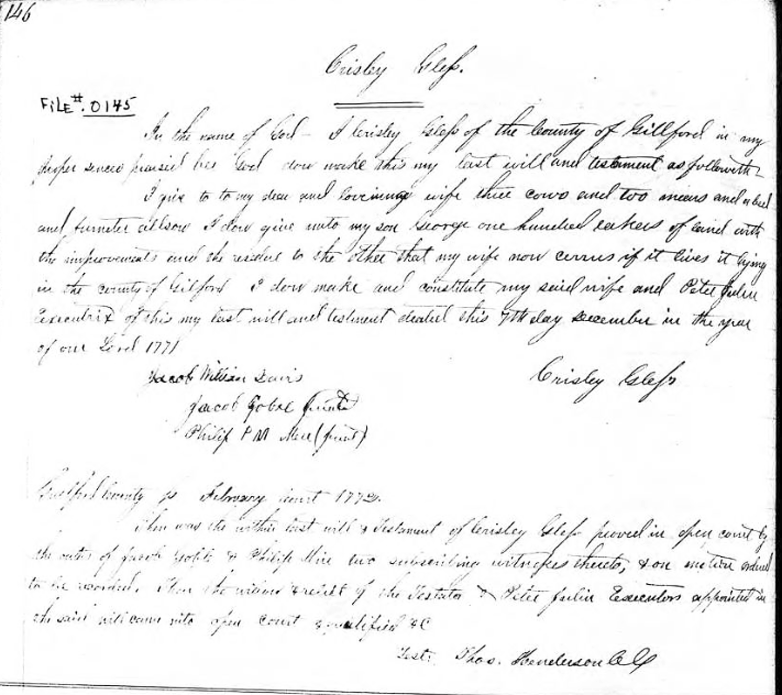 146
Crisley Gless.
FiLE #. 0145
In the name of God - I Crisley Gless of the County of Gillford in my
proper praised bee God dow make this my last will and testament as followith-
I give to to my dear and loveinug wife three cows and two and a bed
and furneter allsow I dow give unto my son George one hundred eakers of land with
the improvements and the residue to the other that my wife now if it lives it lying
in the county of Gilford I dow make and constitute my said wife and Peter Julin
Executrix of this my last will and testment deated this 9th day December in the year
of our Lord 1771
Jacob William Davis
Crisley Gless
Jacob
Philip P M
Guilford County February court 1772.
Then was the within last will & Testament of Crisley Gless proved in open court by
the oaths of Jacob & Philip two subscribing witnesses thereto, & on motion ordered
to be recorded. Then the widow & relict of the Testator & Peter Julin Executors appointed in
the said will came into open court & qualified &C
Test. Thos. Henderson